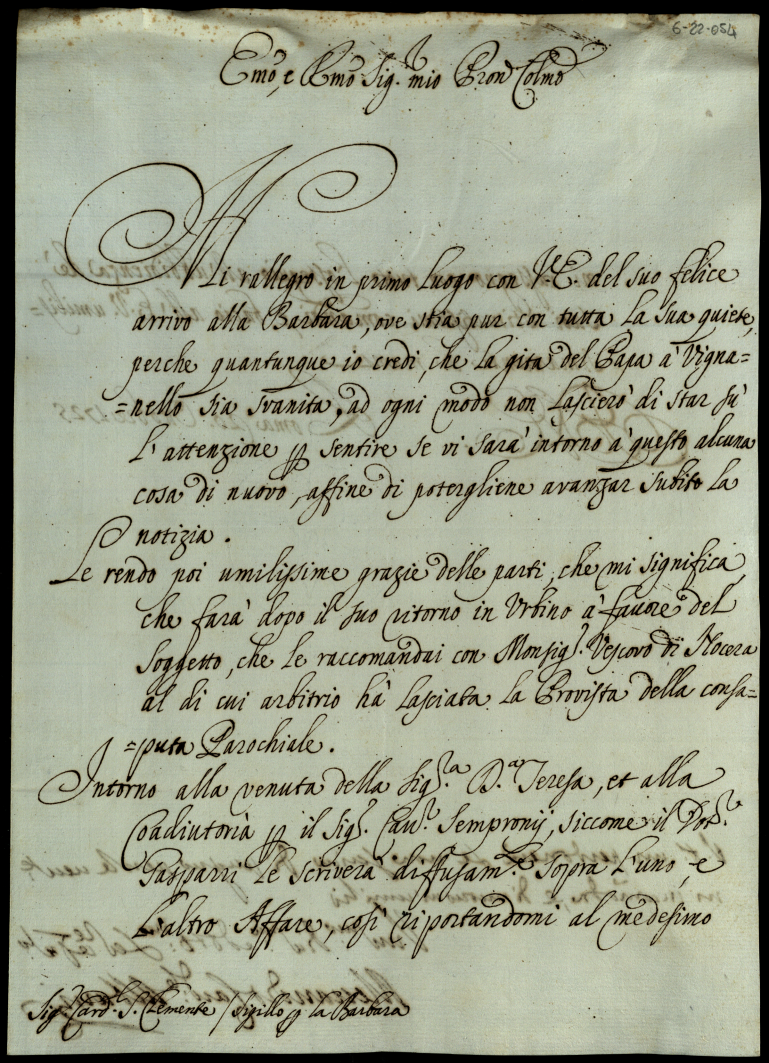 6-22-054
Emo, e Rmo Sig.r mio Pron Colmo
Mi rallegro in primo luogo con V.E. del suo felice
arrivo alla Barbara, ove stia pur con tutta la sua quiete,
perche quantunque io credi, che la gita del Papa à Vigna=
=nello sia svanita, ad ogni modo non lascierò di star sù
l'attenzione p sentire se vi sarà intorno à questo alcuna
cosa di nuovo, affine di potergliene avanzar subito la
notizia.
Le rendo poi umilissime grazie delle parti, che mi significa,
che farà dopo il suo ritorno in Urbino à favore del
soggetto, che le raccomandai con Monsig.r Vescovo di Nocera
al di cui arbitrio hà lasciata la Provista della consa=
=puta Parochiale.
Intorno alla venuta della Sig.ra D.a Teresa, et alla
Coadiutoria p il Sig.r Cau.r Sempronij, siccome il Dot.r
Gasparri le scriverà diffusam.te sopra l'uno, e
l'altro Affare, così riportandomi al medesimo
Sig.r Card.l S. Clemente / Sigillo p la Barbara